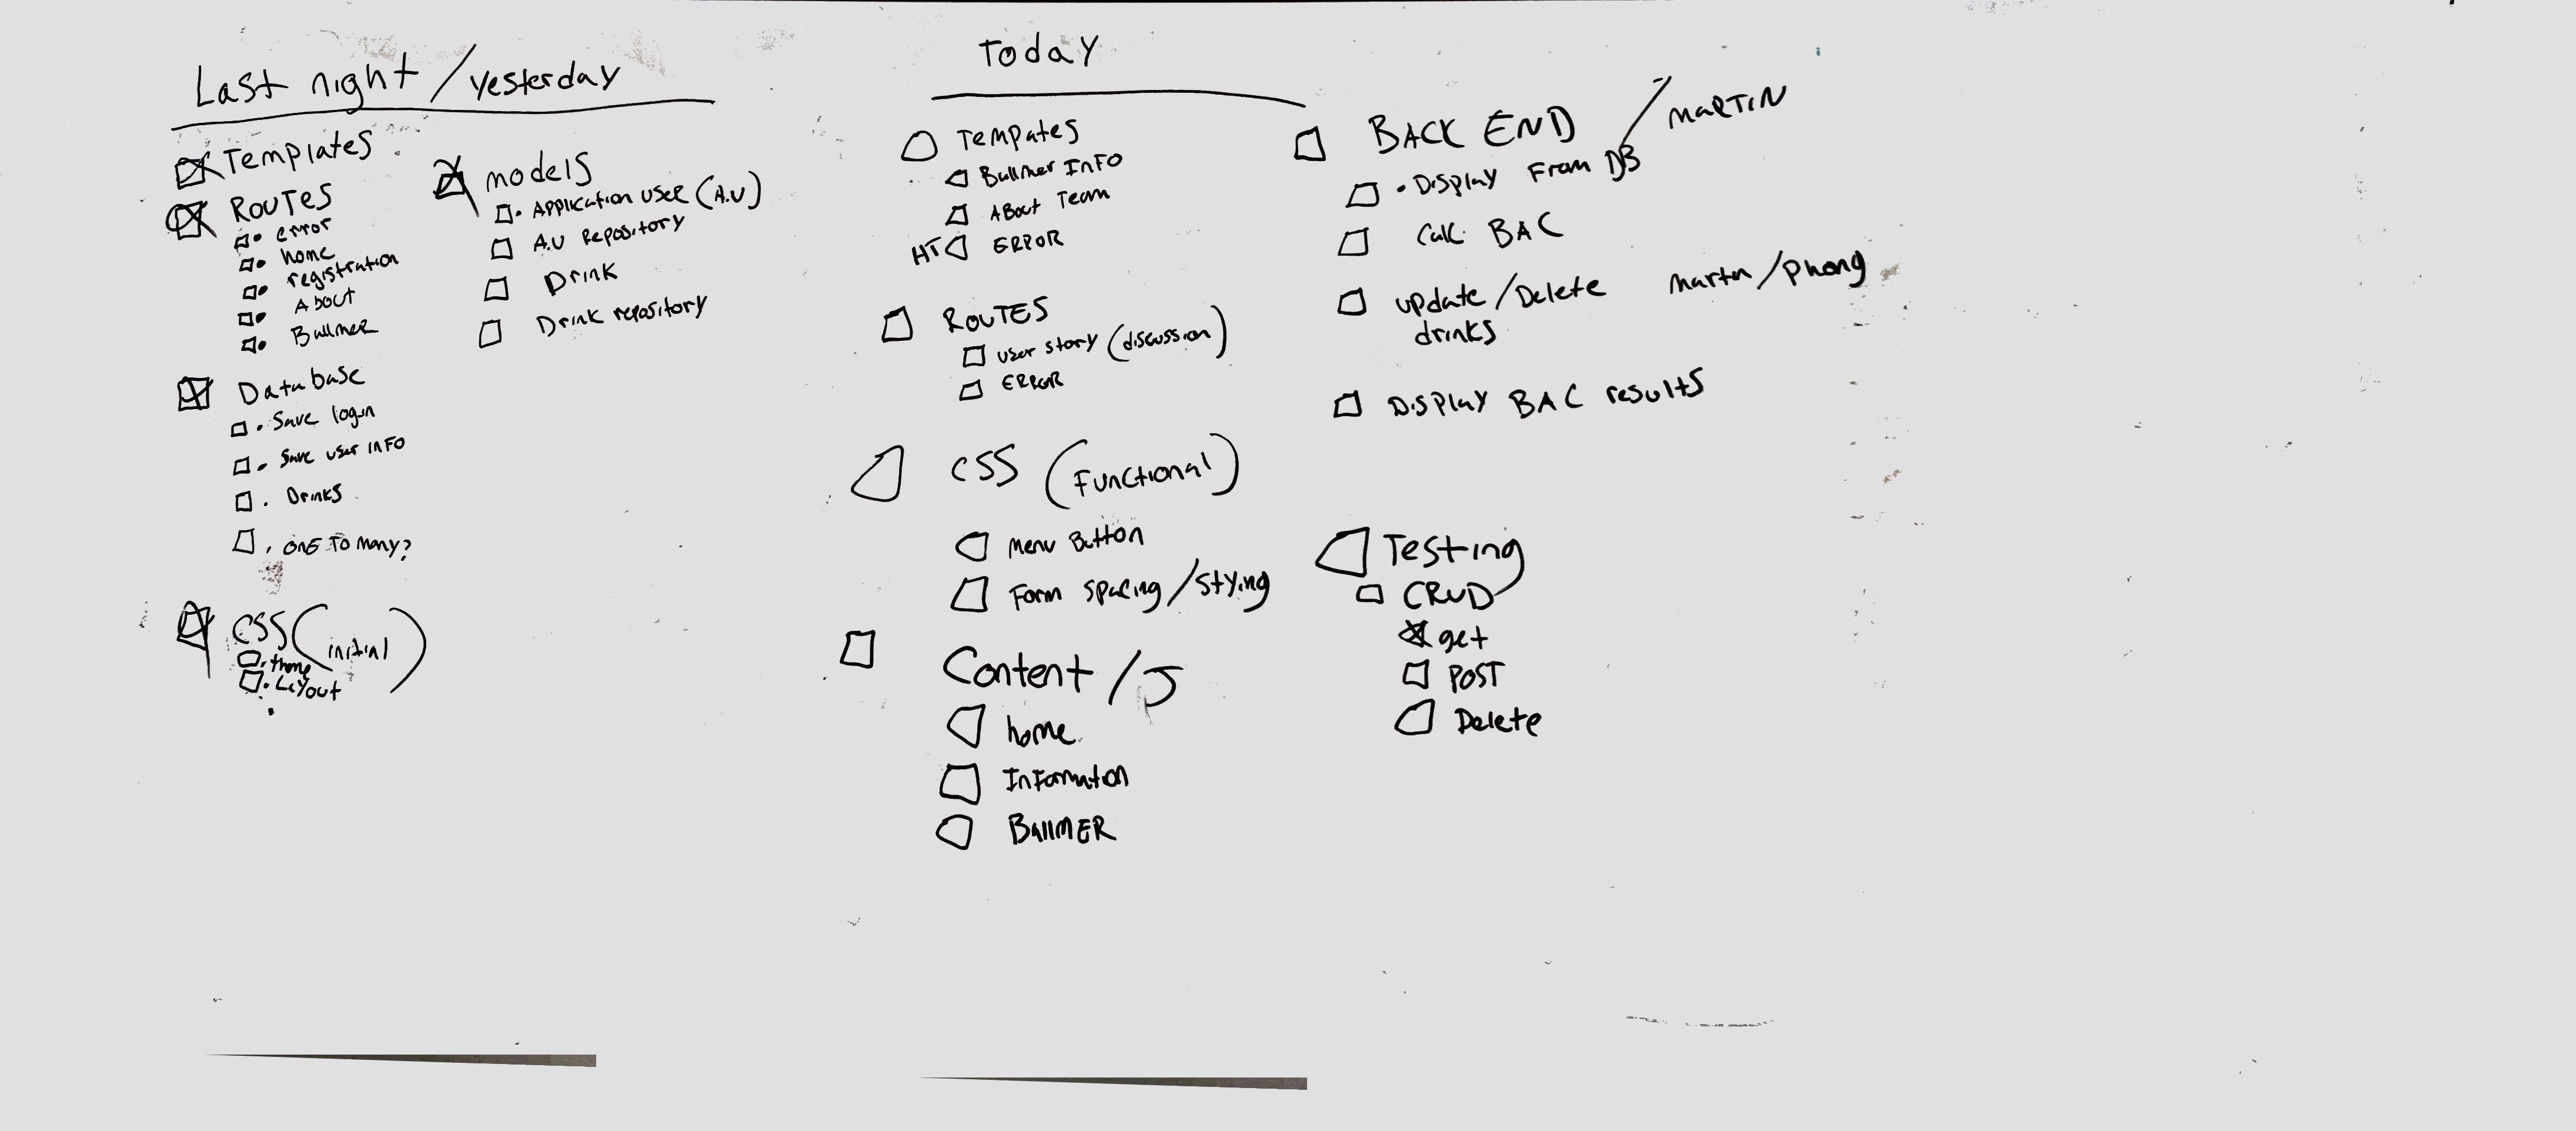 Last night / yesterday
Templates
Routes
error
home
registration
About
Ballmer
Database
Save login
Save user info
Drinks
one to many?
CSS (initial)
theme
Layout
models
Application user (A.U)
A.U Repository
Drink
Drink repository
Today
Tempates
Ballmer InFO
About Team
HT ERROR
Routes
user story (discussion)
ERROR
CSS (Functional)
Menu Button
Form spacing / stying
Content / J
home
Information
BallMER
BACK END / MARTIN
Display From DB
Calc BAC
update / Delete martin / phong
drinks
Display BAC results
Testing
CRUD
get
POST
Delete